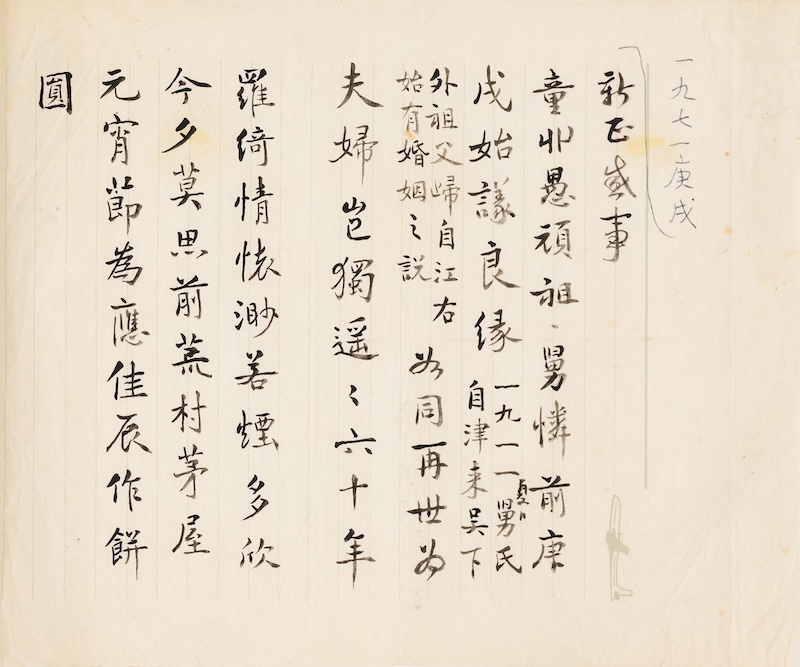 一九七一庚戌
新正感事
童丱愚頑祖、舅憐前庚
戌始議良缘
一九一一夏日舅氏
自津来吴下
外祖父歸自江右
始有婚姻之説
如同再世為
夫婦豈獨遥々六十年
羅綺情懐渺若煙多欣
今夕莫思前荒村茅屋
元宵節為應佳辰作餅
圓